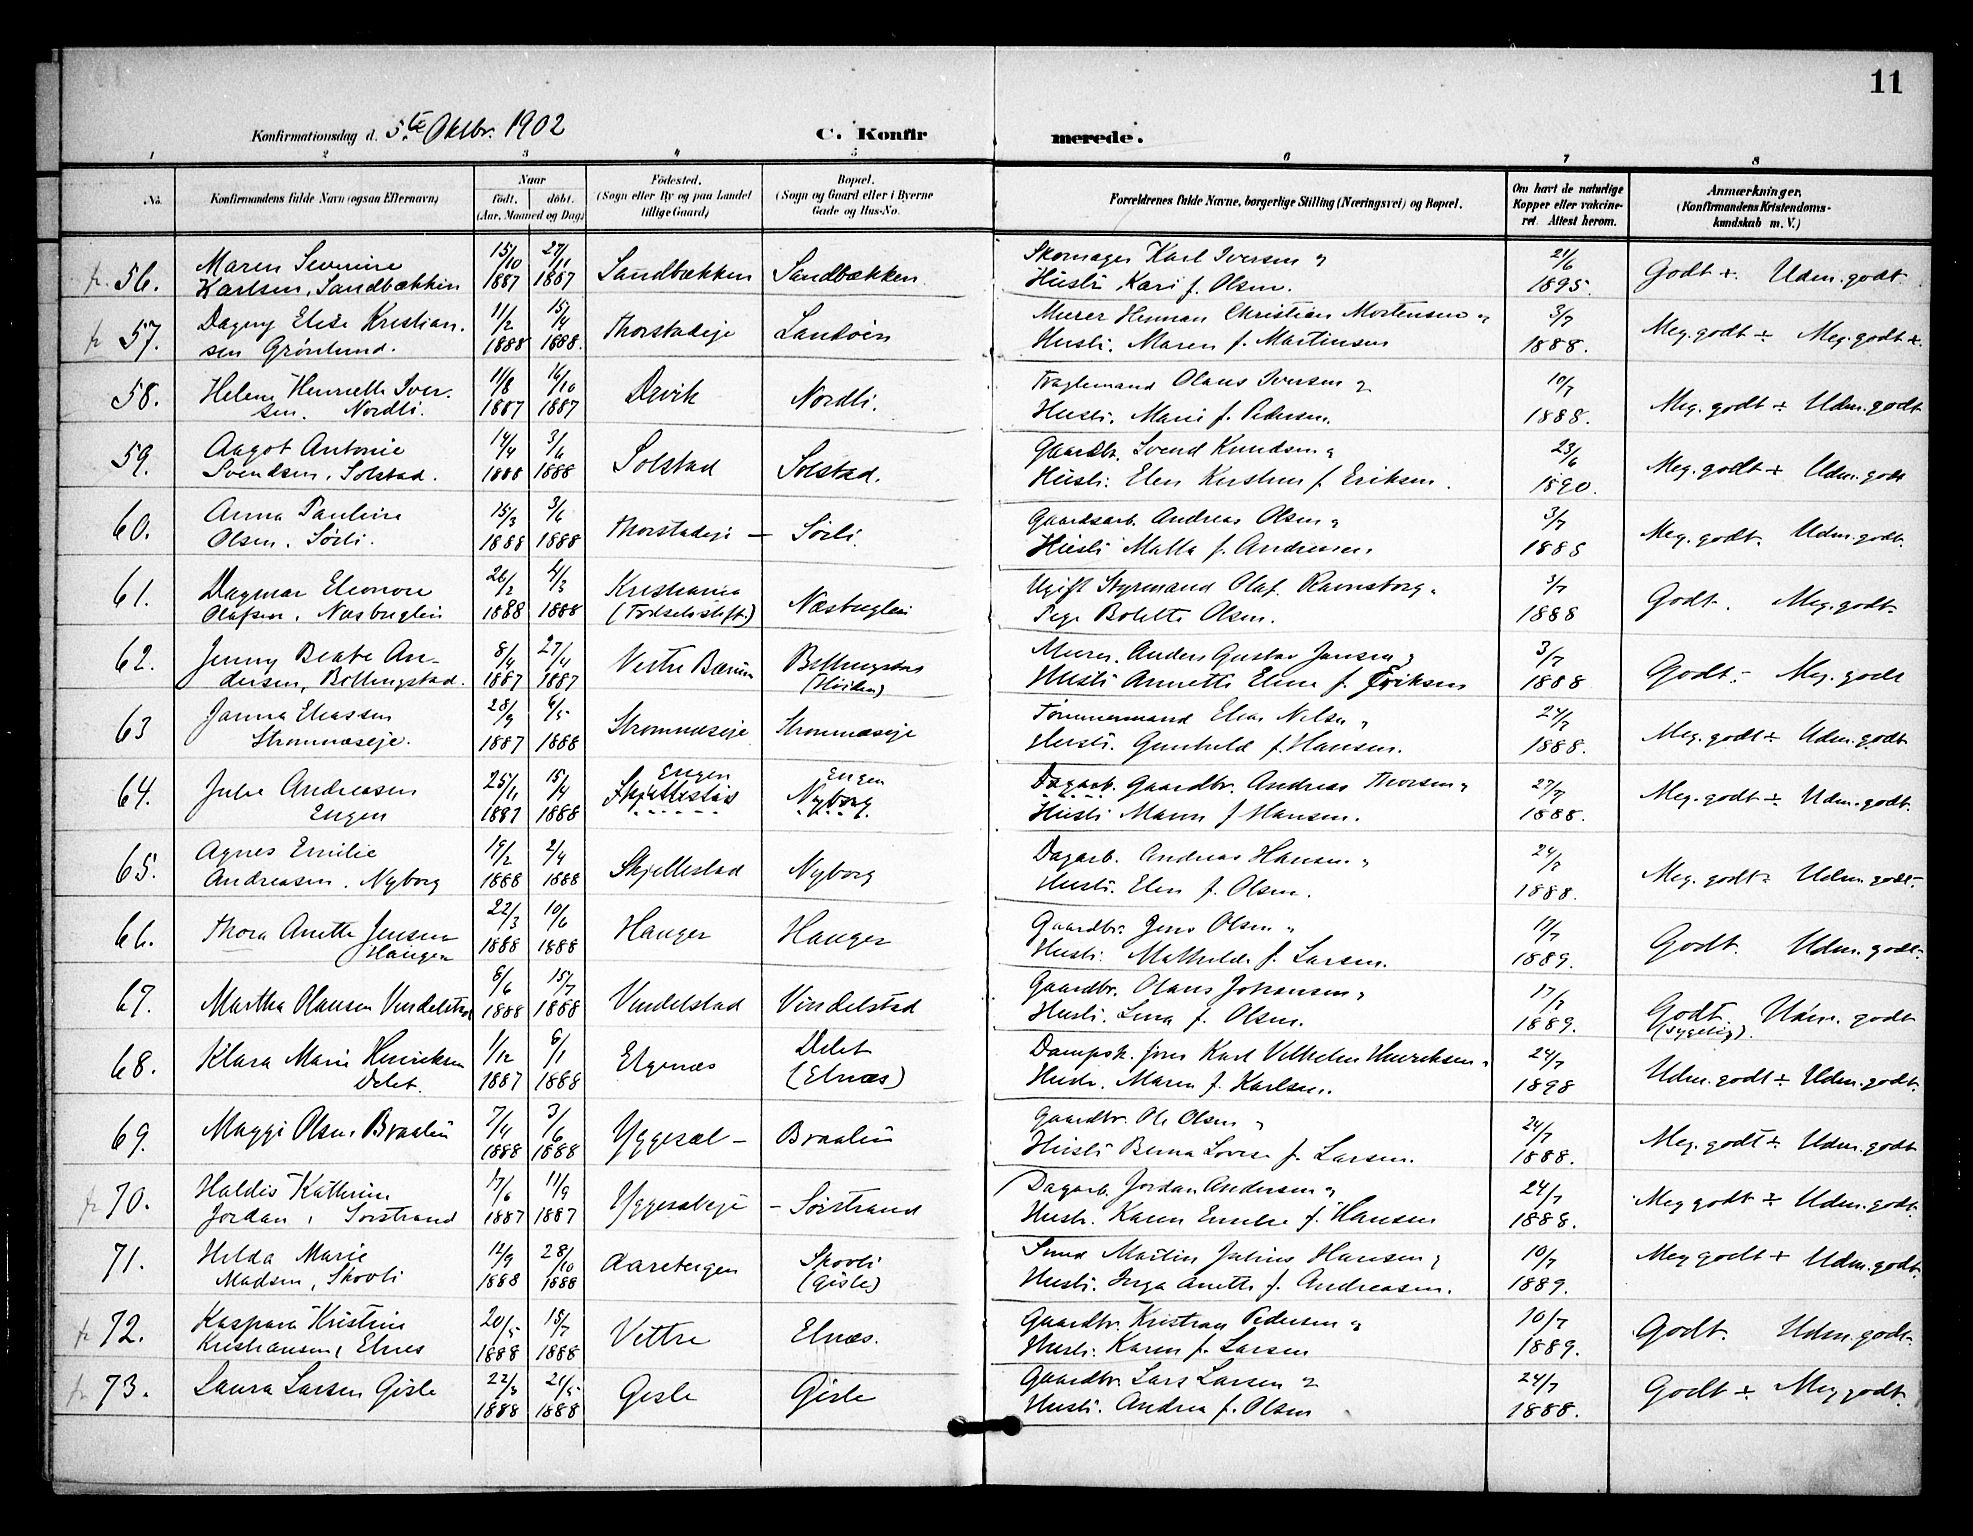 11
Konfirmationsdag d. 5te Oktbr. 1902
C. Konfirmerede.
1 2 3 4 5 6 7 8
No.
Konfirmandens fulde Navn (ogsaa Efternavn)
Naar
født. døbt.
(Aar, Maaned og Dag)
Fødested.
(Sogn eller By og paa Landet
tillige Gaard)
Bopæl.
(Sogn og Gaard eller i Byerne
Gade og Hus-No.
Forældrenes fulde Navne, borgerlige Stilling (Næringsvei) og Bopæl.
Om havt de naturlige
Kopper eller vakcine-
ret. Attest herom.
Anmærkninger.
(Konfirmandens Kristendoms-
kundskab m. V.)
Maren Severine 15/10 27/11 Skomager Karl Iversen 21/6
fr. 56. Karlsen, Sandbækken 1887 1887 Sandbækken Sandbækken Hustru Kari f. Olsen. 1895. Godt + Udm. godt.
Dagny Elise Kristian- 11/2 15/4 Murer Herman Christian Mortensen 3/7
fr 57. sen Grönlund. 1888 1888. Thorstadeje Landöen Hustr. Maren f. Martinsen 1888. Meg. godt ÷ Meg. godt +.
Helene Henriette Iver- 11/8 16/10 Olaus Iversen 10/7
58. sen. Nordli. 1887 1887 Drvik Nordli. Hustr. Marie f. Pedersen. 1888. Meg. godt ÷ Udm. godt
Aagot Antonie 14/4 3/6 Gaardbr. Svend Knudsen 23/6
59. Svendsen, Solstad. 1888 1888 Solstad Solstad. Hustr. Elen Kirstine f. Eriksen. 1890. Meg. godt + Udm. godt
Anna Pauline 15/3 3/6 Gaardsarb. Andreas Olsen 3/7
60. Olsen, Sörli. 1888 1888 Thorstadeje - Sörli. Hustr. Malla f. Andresen 1888 Meg. godt. Udm. godt.
Dagmar Eleonore 26/2 4/3 Kristiania Ugift Styrmand Olaf Ravnsborg 3/7
61. Olafsen, Næsbuglen 1888 1888 (Fødselsstift.) Næsbuglen Pige Bolette Olsen. 1888 Godt. Meg. godt.
Jenny Beate An- 8/4 27/4 Murer. Anders Gustav Jansen 3/7
62. dersen, Billingstad. 1887 1887 Vestre Bærum Billingstad Hustr. Annette Eline f. Eriksen 1888 Godt ÷ Meg. godt
Janna Eliassen 28/9 6/5 Tømmermand Elias Nilsen 24/7
63 Strömnæseje. 1887 1888 Strömnæseje Strömnæseje Hustr. Gunhild f. Hansen. 1888. Meg. godt ÷ Udm. godt
Julie Andreasen 25/11 15/4 Engen Engen Dagarb. Gaardbr. Andreas Thorsen 27/7
64. Engen 1887 1888 Skjellestad Nyborg. Hustr. Maren f. Hansen. 1888. Meg. godt ÷ Udm. godt.
Agnes Emilie 19/2 2/4 Dagarb. Andreas Hansen 24/7
65. Andreasen, Nyborg 1888 1888 Skjellestad Nyborg Hustr. Elen f. Olsen. 1888. Meg. godt ÷ Udm. godt.
Thora Anette Jensen 22/3 10/6 Gaardbr. Jens Olsen 17/7
66. Hauger 1888 1888 Hauger Hauger Hustr. Mathilde f. Larsen. 1889. Godt. Udm. godt.
6/6 15/7 Gaardbr. Olaus Johansen 17/7
67. Martha Olausen Vindelstad 1888 1888 Vindelstad Vindelstad Hustr. Lina f. Olsen. 1889. Godt. (sygelig). Udm. godt
Klara Marie Henriksen 1/12 6/1 Delet Karl Vilhelm Henriksen 24/7
68. Delet. 1887 1888 Elgenæs (Elnæs) Hustr. Maren f. Karlsen. 1898 Udm. godt ÷ Udm. godt.
7/4 3/6 Gaardbr. Ole Olsen 24/7
69. Maggi Olsen Braalin 1888 1888 Yggesæt - Braalin Hustr. Berna Lovise f. Larsen. 1888. Meg. godt ÷ Udm. godt
Haldis Kathrine 17/6 11/9 Dagarb. Jordan Andersen 24/7
fr 70. Jordan, Sörstrand 1887 1887 Yggesæteje - Sörstrand Hustr. Karen Emilie f. Hansen 1888. Meg godt ÷ Udm. godt.
Hilda Marie 12/9 28/10 Skovli Smed Martin Julius Hansen 10/7
71. Madsen, Skovli 1888 1888 Aarebergen (Gisle) Hustr. Inga Anette f. Andreasen. 1889. Meg godt + Udm. godt.
Kaspara Kristine 20/5 15/7 Gaardbr. Kristian Pedersen 10/7
fr 72. Kristiansen, Elnes 1888 1888 Vettre Elnæs. Hustr. Karen f. Larsen 1889. Godt. Udm. godt.
22/3 21/5 Gaardbr. Lars Larsen 24/7
fr 73. Laura Larsen Gisle 1888 1888 Gisle Gisle Hustr. Andrea f. Olsen 1888. Godt ÷ Meg godt.